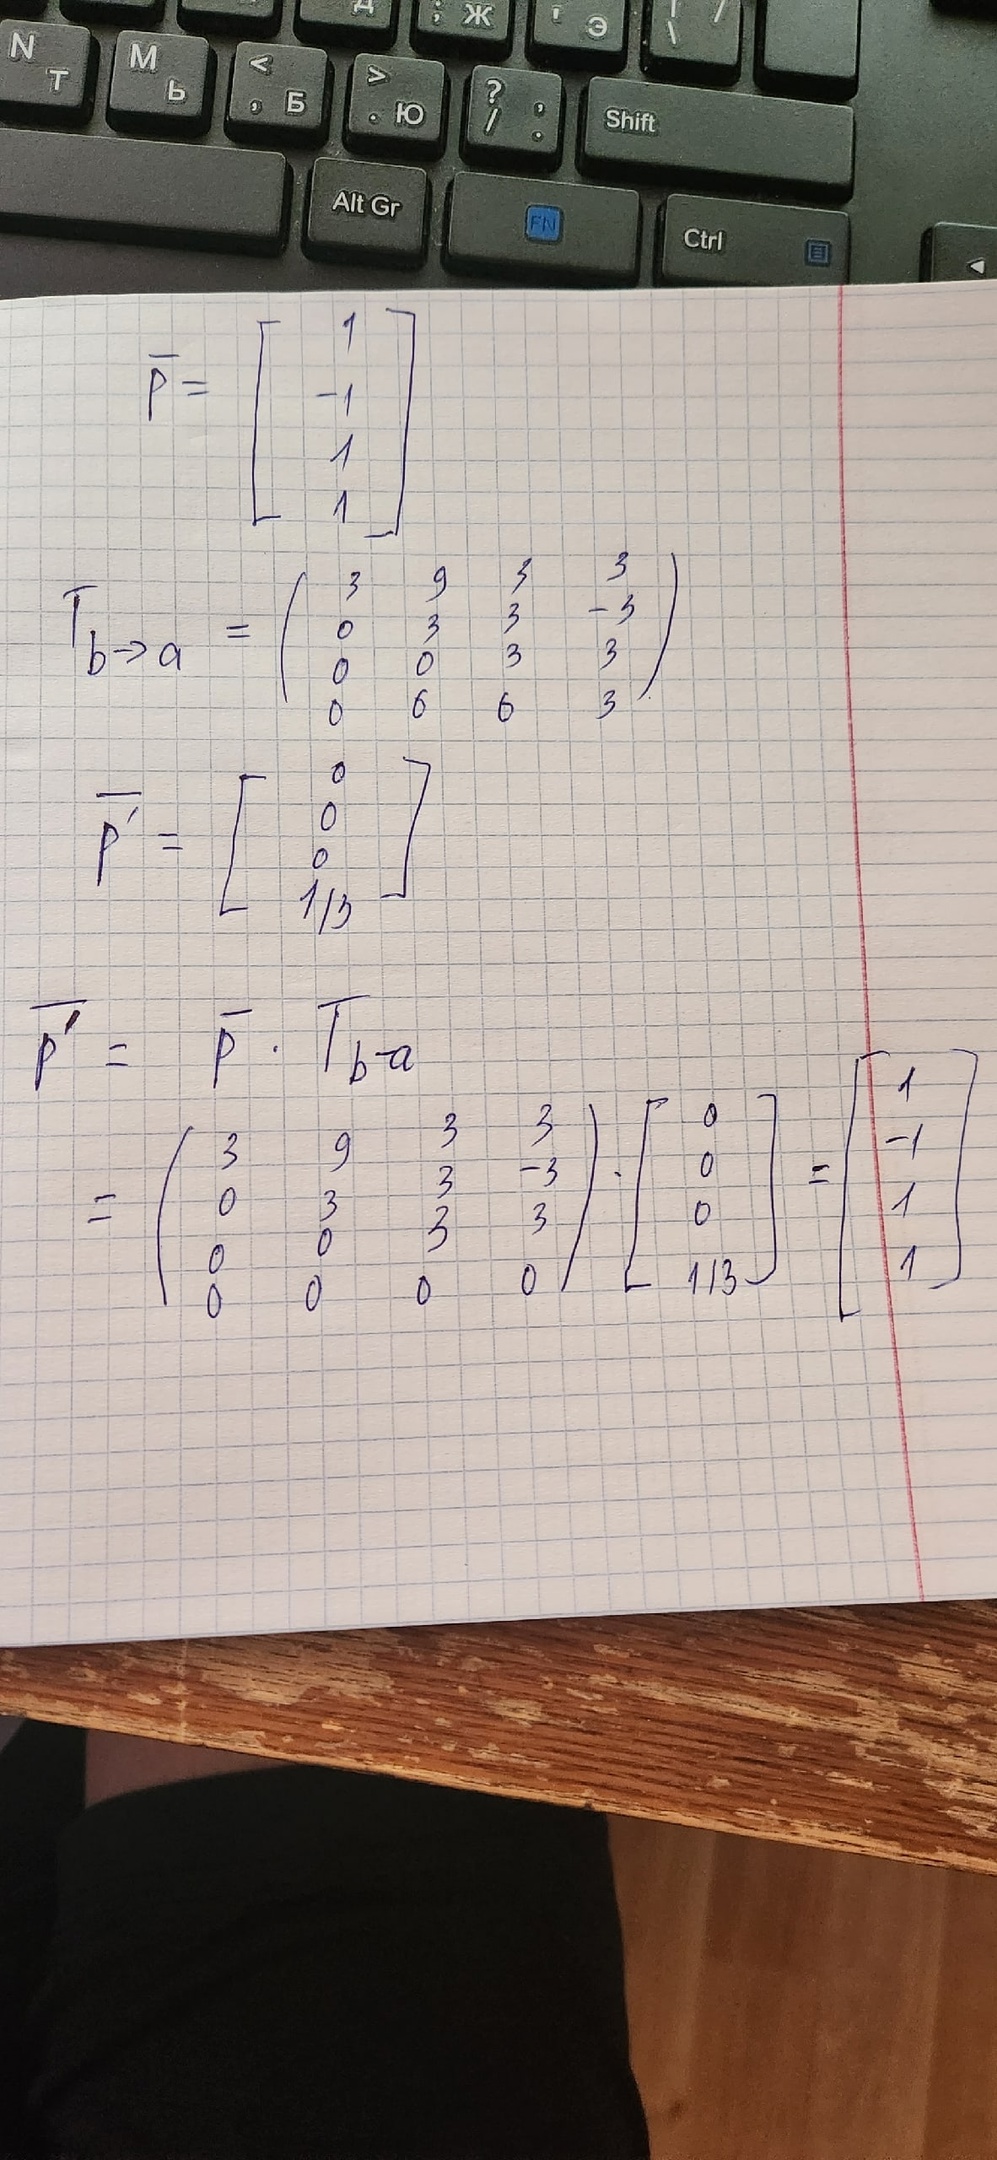 N Т М Ь < , Б > . Ю ? / , . Shift
Д ; Ж ' Э | / \
Alt Gr FN Ctrl
p̅ = [ 1
-1
1
1 ]
T b→a = ( 3 9 3 3
0 3 3 -3
0 0 3 3
0 6 6 3 )
p̅' = [ 0
0
0
1/3 ]
p̅' = p̅ · T b-a
= ( 3 9 3 3
0 3 3 -3
0 0 3 3
0 0 0 0 ) · [ 0
0
0
1/3 ] = [ 1
-1
1
1 ]